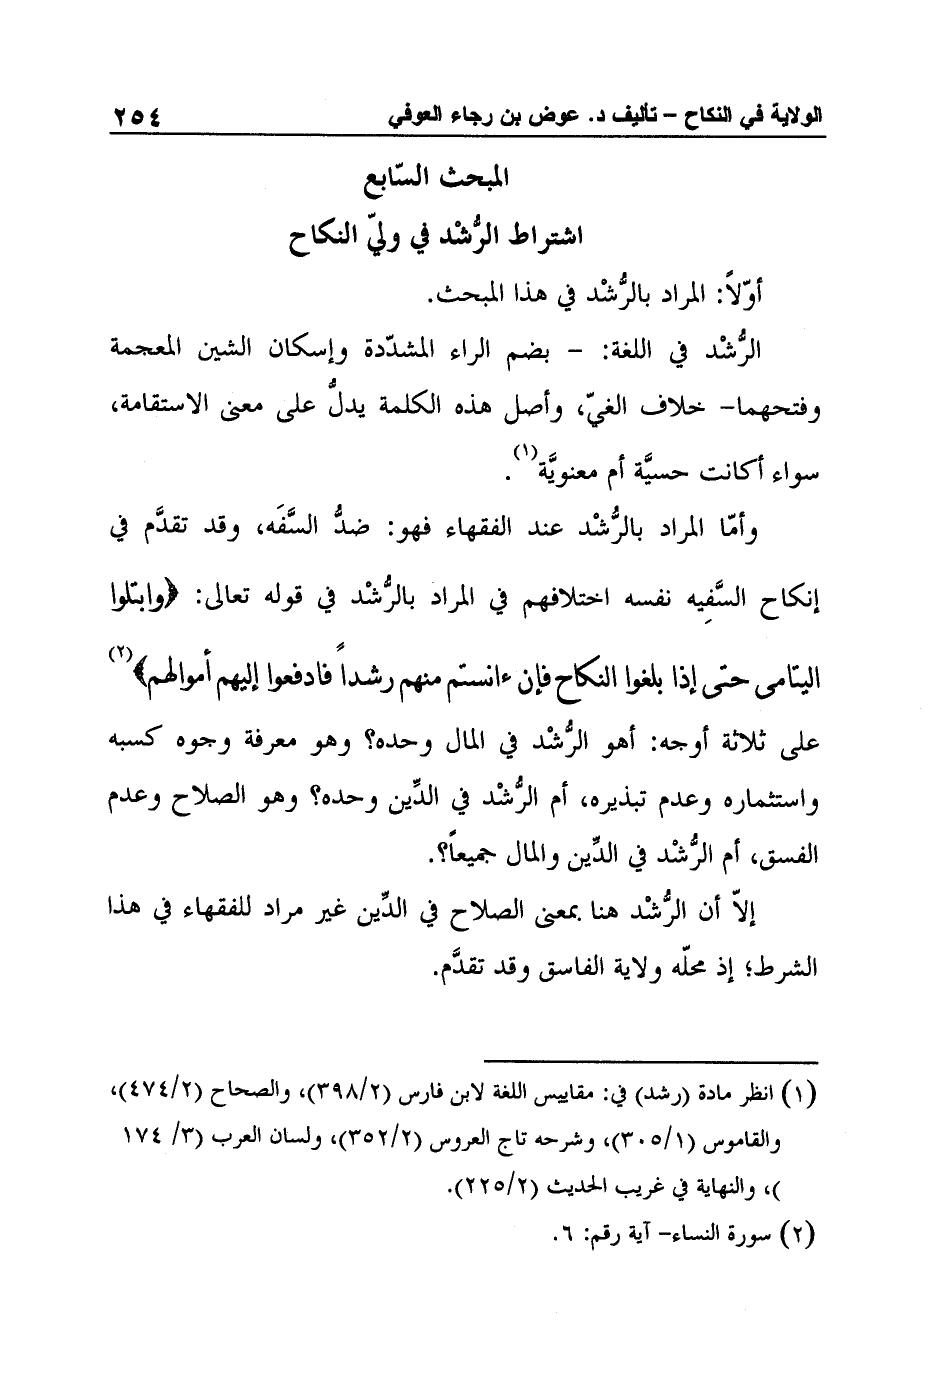 الولاية في النكاح – تأليف د. عوض بن رجاء العوفي ٢٥٤
المبحث السّابع
اشتراط الرُّشْد في وليّ النكاح
أوّلاً: المراد بالرُّشْد في هذا المبحث.
الرُّشْد في اللغة: – بضم الراء المشدّدة وإسكان الشين المعجمة
وفتحهما– خلاف الغيّ، وأصل هذه الكلمة يدلُّ على معنى الاستقامة،
سواء أكانت حسيَّة أم معنويَّة(١).
وأمّا المراد بالرُّشْد عند الفقهاء فهو: ضدُّ السَّفَه، وقد تقدَّم في
إنكاح السَّفِيه نفسه اختلافهم في المراد بالرُّشْد في قوله تعالى: ﴿وابتلوا
اليتامى حتى إذا بلغوا النكاح فإن ءانستم منهم رشداً فادفعوا إليهم أموالهم﴾(٢)
على ثلاثة أوجه: أهو الرُّشْد في المال وحده؟ وهو معرفة وجوه كسبه
واستثماره وعدم تبذيره، أم الرُّشْد في الدِّين وحده؟ وهو الصلاح وعدم
الفسق، أم الرُّشْد في الدِّين والمال جميعاً؟.
إلاّ أن الرُّشْد هنا بمعنى الصلاح في الدِّين غير مراد للفقهاء في هذا
الشرط؛ إذ محلّه ولاية الفاسق وقد تقدَّم.
(١) انظر مادة (رشد) في: مقاييس اللغة لابن فارس (٣٩٨/٢)، والصحاح (٤٧٤/٢)،
والقاموس (٣٠٥/١)، وشرحه تاج العروس (٣٥٢/٢)، ولسان العرب (٣/ ١٧٤
)، والنهاية في غريب الحديث (٢٢٥/٢).
(٢) سورة النساء– آية رقم: ٦.